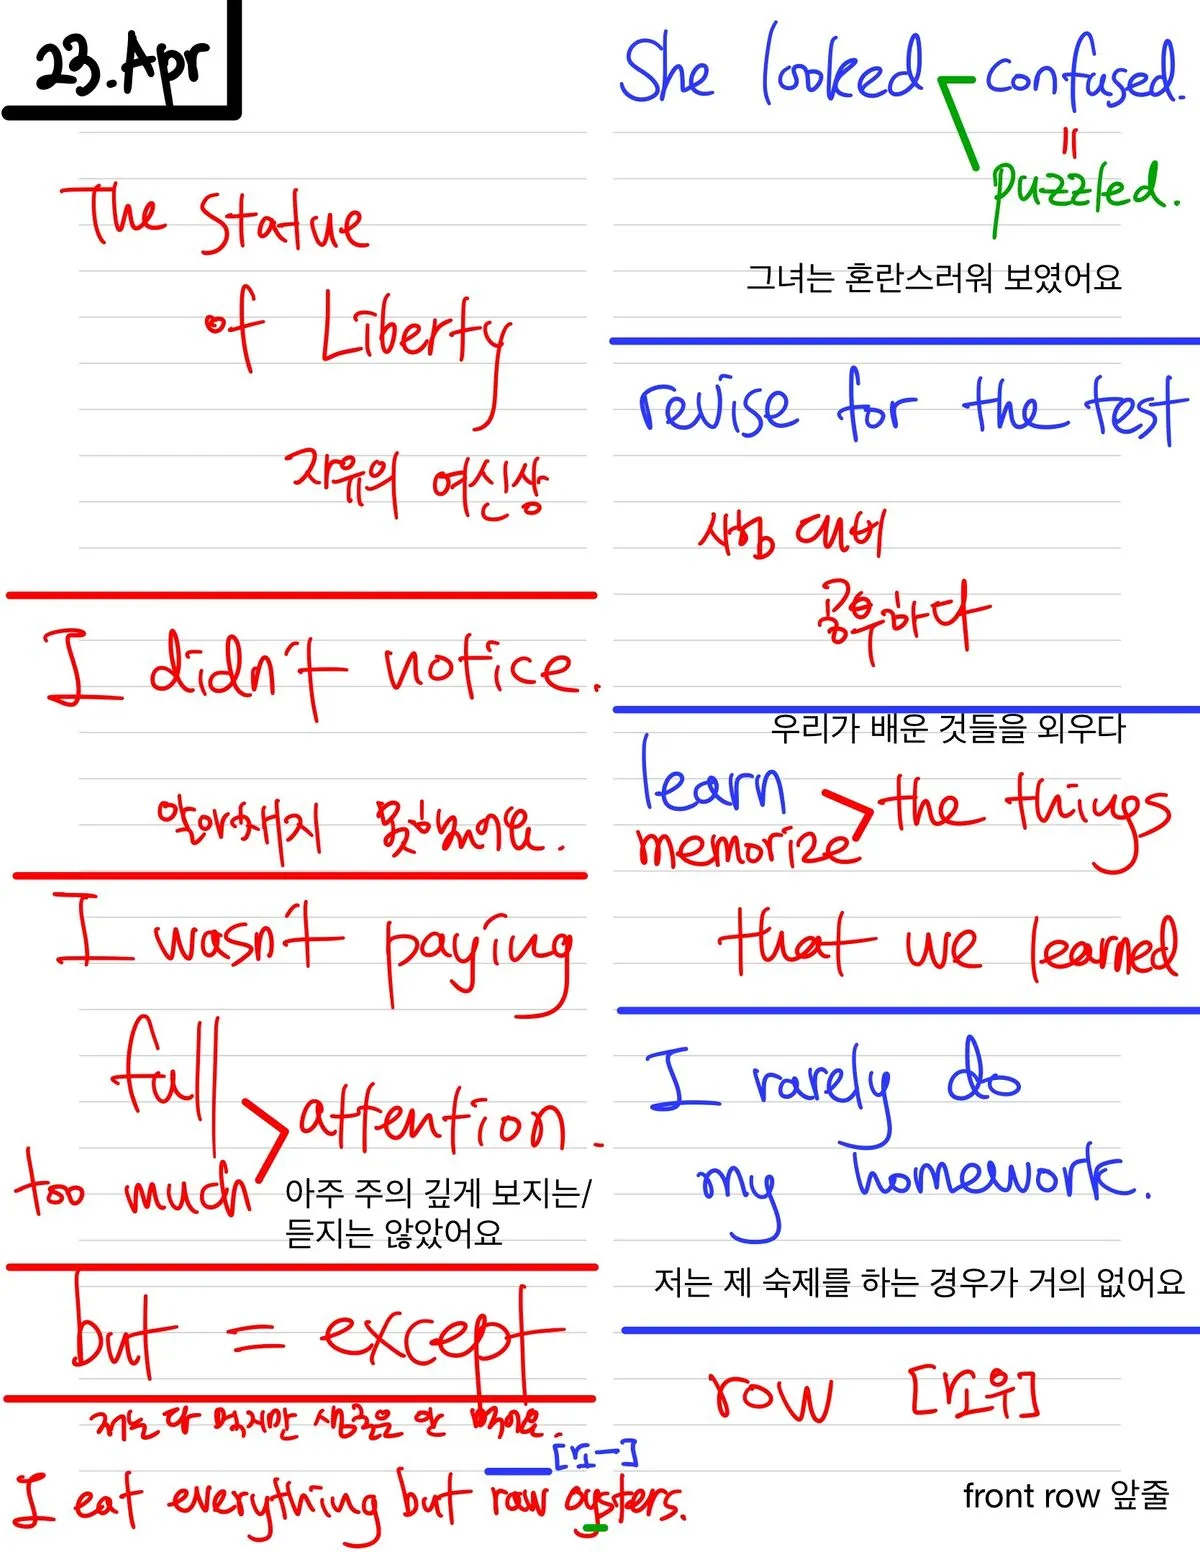 23.Apr
The Statue
of Liberty
자유의 여신상
I didn't notice.
알아채지 못했어요.
I wasn't paying
full
attention.
too much
아주 주의 깊게 보지는/
듣지는 않았어요
but = except
저는 다 먹지만 생굴은 안 먹어요.
[ro-]
I eat everything but raw oysters.
She looked confused.
=
puzzled.
그녀는 혼란스러워 보였어요
revise for the test
시험 대비
공부하다
우리가 배운 것들을 외우다
learn
the things
memorize
that we learned
I rarely do
my homework.
저는 제 숙제를 하는 경우가 거의 없어요
row [r오우]
front row 앞줄